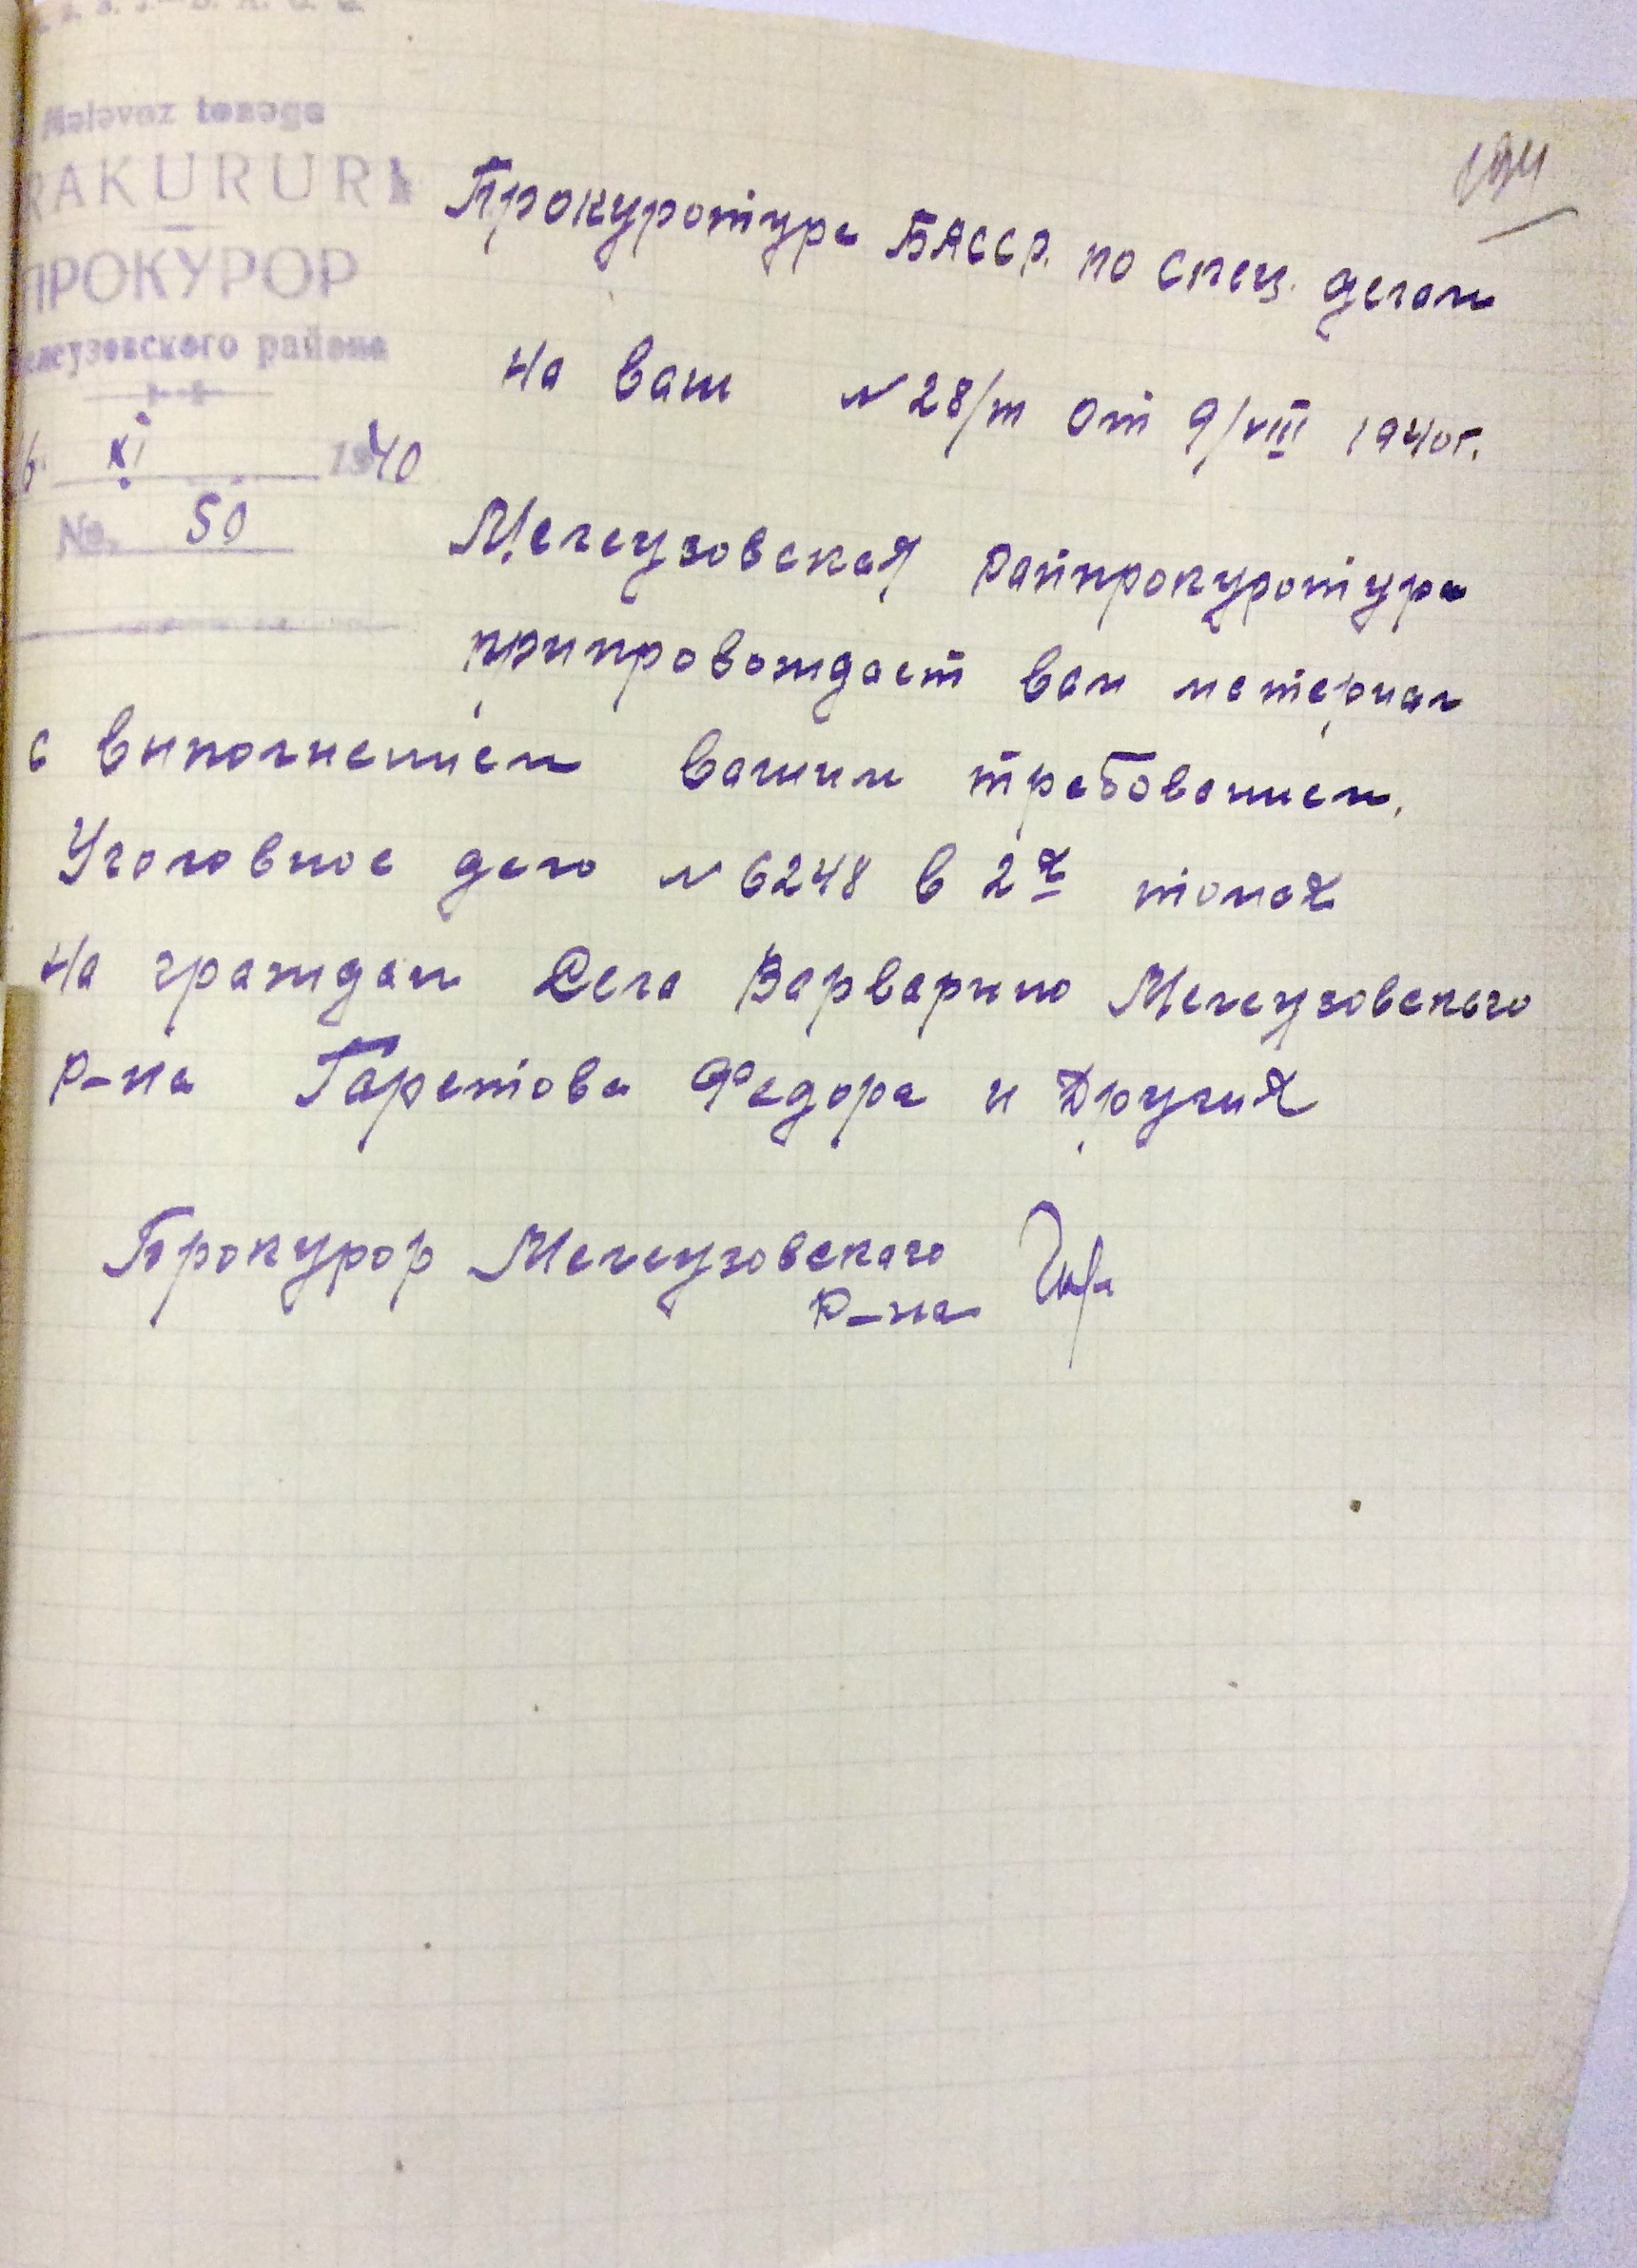 Mələvəz tɵnəge
RAKURURЬ
ПРОКУРОР
елеузовского района
6 XI 1940
No. 50
194
Прокуротура БАССР. по спец. делам
На ваш N 28/т от 9/VIII 1940г.
Мелеузовская райпрокуротура
припровождает вам материал
с виполнением вашим требованием.
Уголовное дело N 6248 в 2х томах
На граждан Села Варварино Мелеузовского
р-на Таретова Федора и Других
Прокурор Мелеузовского
р-на